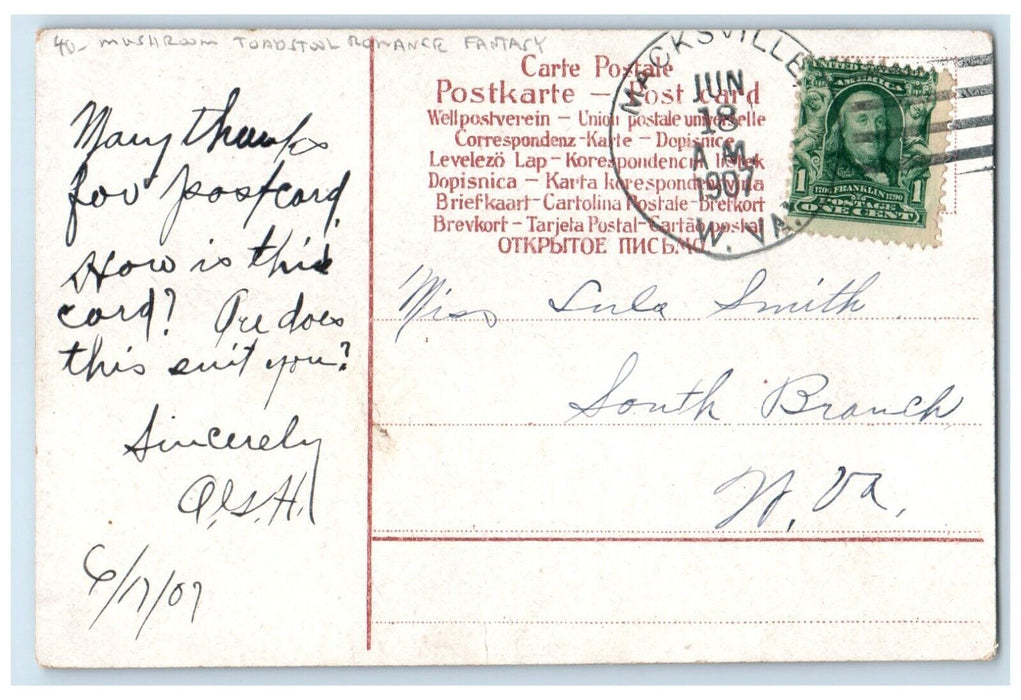 40- MUSHROOM TOADSTOOL ROMANCE FANTASY
Many thanks
for postcard.
How is this
card?
does
this suit you?
Sincerely
6/17/07
Carte Postale
Postkarte — Post card
Weltpostverein - Union postale universelle
Correspondenz-Karte - Dopisnice
Levelező Lap - Korespondencni listek
Dopisnica - Karta korespondencyjna
Briefkaart - Cartolina Postale - Brefkort
Brevkort - Tarjeta Postal - Cartão postal
ОТКРЫТОЕ ПИСЬМО
MACKSVILLE
JUN
18
A.M.
1907
W. VA.
UNITED STATES OF
AMERICA
1706 FRANKLIN 1790
1 POSTAGE 1
ONE CENT
Miss Lula Smith
South Branch
W. Va.